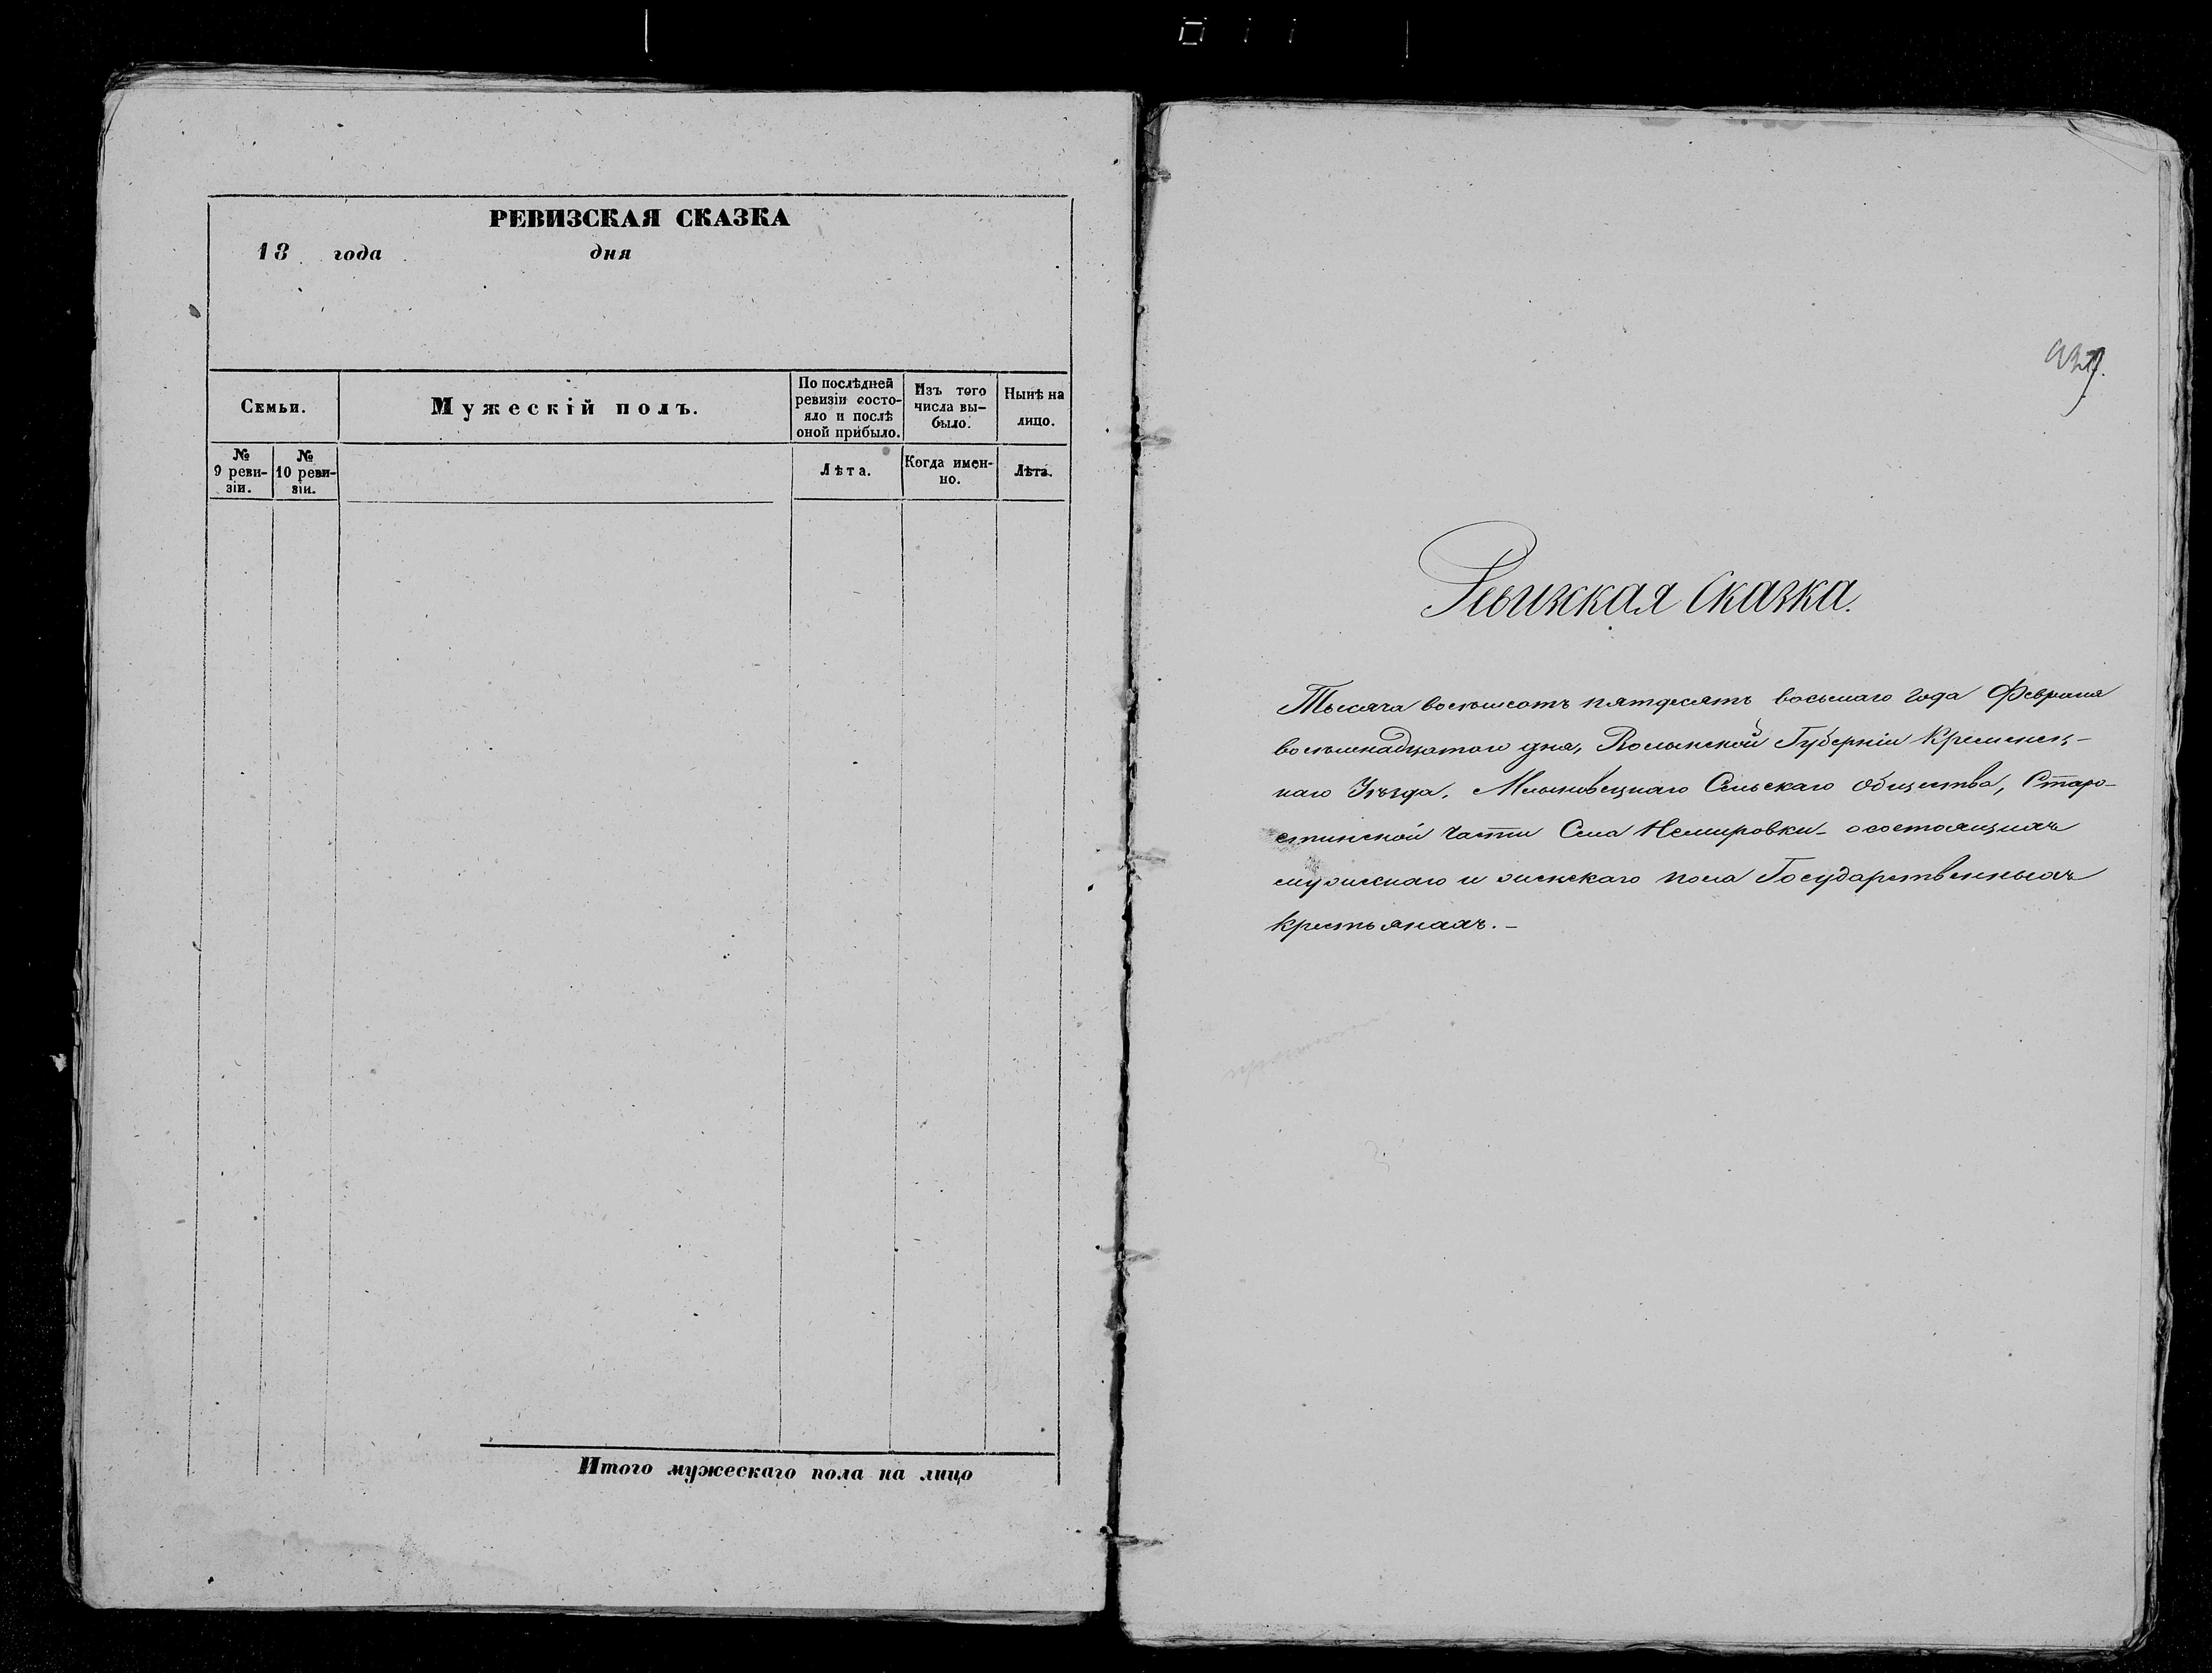 РЕВИЗСКАЯ СКАЗКА
18 года дня
Семьи.
Мужескій полъ.
По послѣдней
ревизіи состо-
яло и послѣ
оной прибыло.
Изъ того
числа вы-
было.
Нынѣ на
лицо.
№
9 реви-
зіи.
№
10 реви-
зіи.
Лѣта.
Когда имен-
но.
Лѣта.
Итого мужескаго пола на лицо
Ревижкая Сказка.
Тысяча восемьсотъ пятдесятъ восьмаго года Февраля
восемнадцатого дня, Волынской Губерніи Кременец-
каго Уѣзда, Млыновецкаго Сельскаго Общества, Старо-
стинской части Села Немировки о состоящихъ
мужескаго и женскаго пола Государственныхъ
крестьянахъ.-